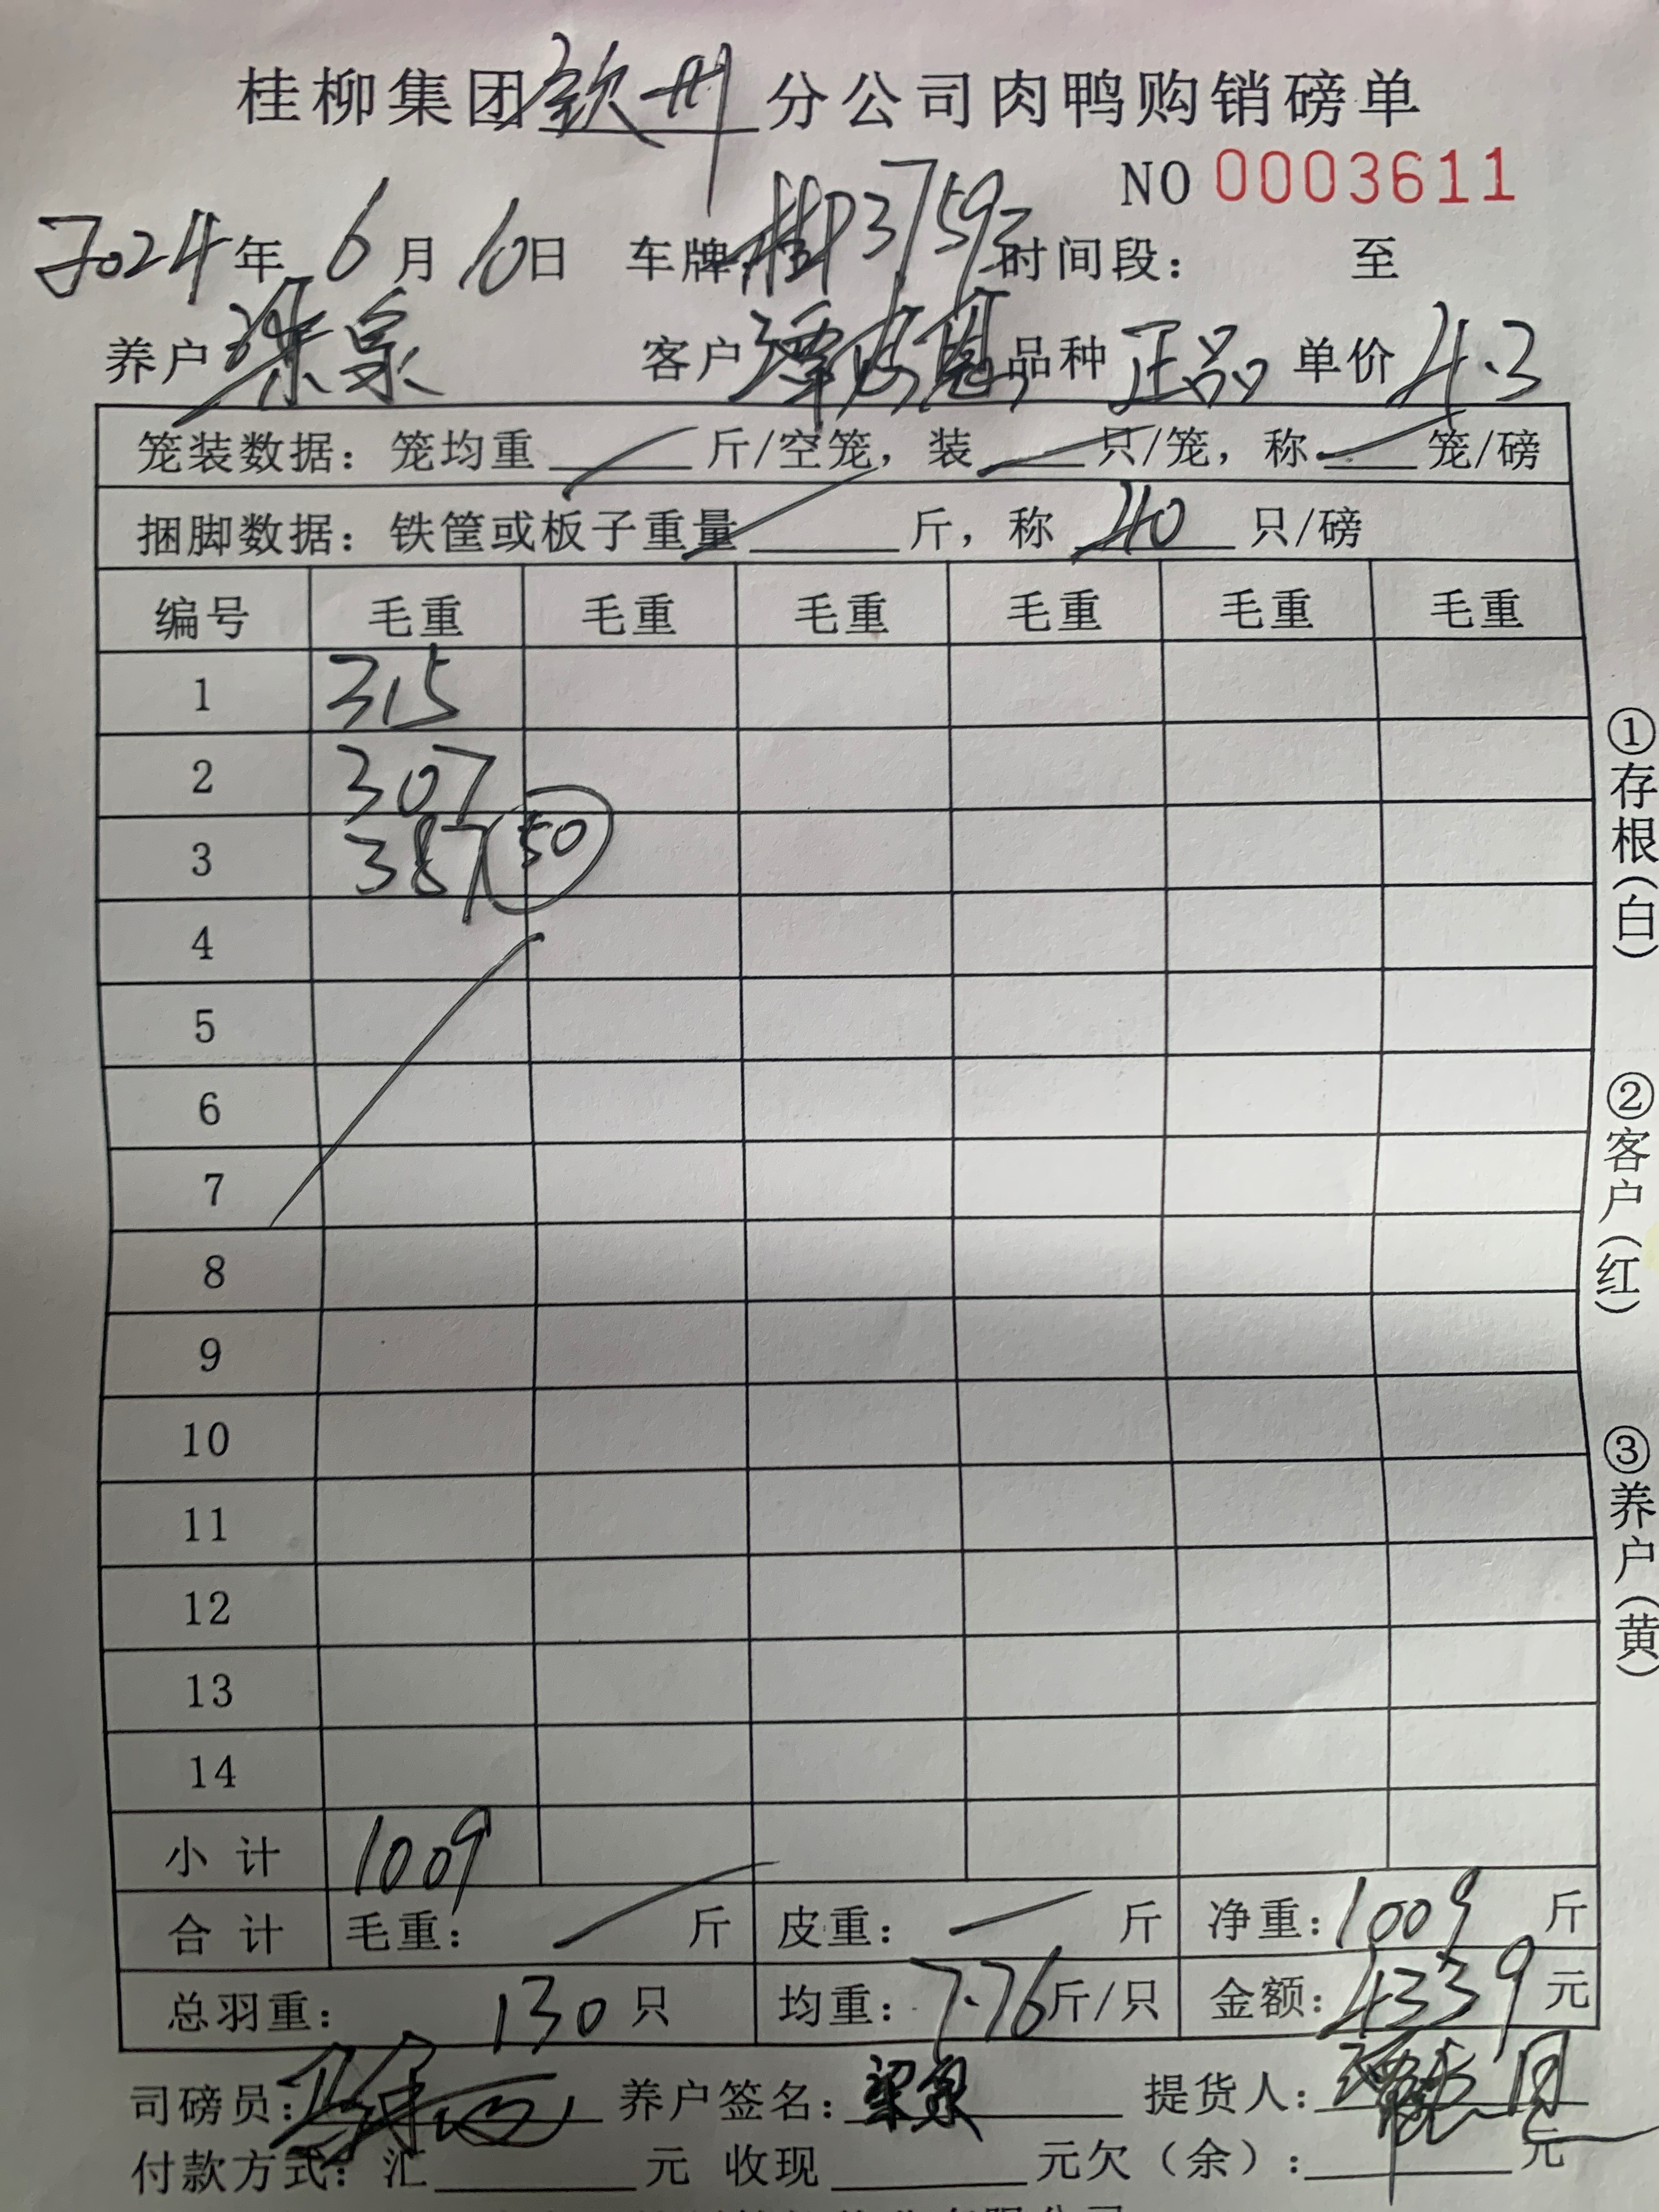 桂柳集团钦州分公司肉鸭购销磅单
NO 0003611
2024年 6月 10日 车牌: 桂P37593 时间段: 至
养户 梁泉 客户 谭 品种 正品 单价 4.3
笼装数据: 笼均重 斤/空笼, 装 只/笼, 称 笼/磅
捆脚数据: 铁筐或板子重量 斤, 称 40 只/磅
编号 毛重 毛重 毛重 毛重 毛重 毛重
1 315
2 307
3 387 50
4
5
6
7
8
9
10
11
12
13
14
小计 1009
合计 毛重: 斤 皮重: 斤 净重: 1009 斤
总羽重: 130 只 均重: 7.76 斤/只 金额: 4339 元
司磅员: 养户签名: 梁泉 提货人: 谭
付款方式: 汇 元 收现 元欠(余): 元
①存根(白) ②客户(红) ③养户(黄)